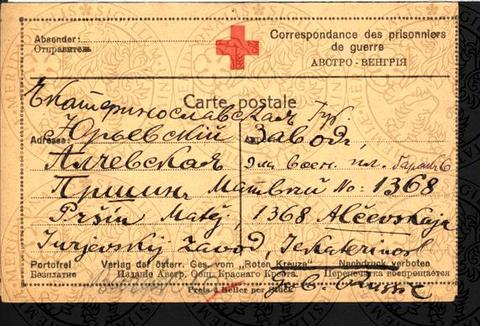 Absender:
Отправитель
Correspondance des prisonniers
de guerre
АВСТРО - ВЕНГРІЯ
Carte postale
Екатеринославская Губ.
Adresse:
Юрьевский Завод,
Алчевская для воен. пл.
Пршин Матвъй No: 1368
Pršin Matěj, 1368 Alčevskaja
Jurjevskij zavod, Jekaterinosl
Portofrei Verlag der österr. Ges. vom „Roten Kreuze" Nachdruck verboten
Безплатно Изданіе Австр. Общ. Краснаго Креста. Перепечатка воспрещается
Preis 4 Heller per Stück